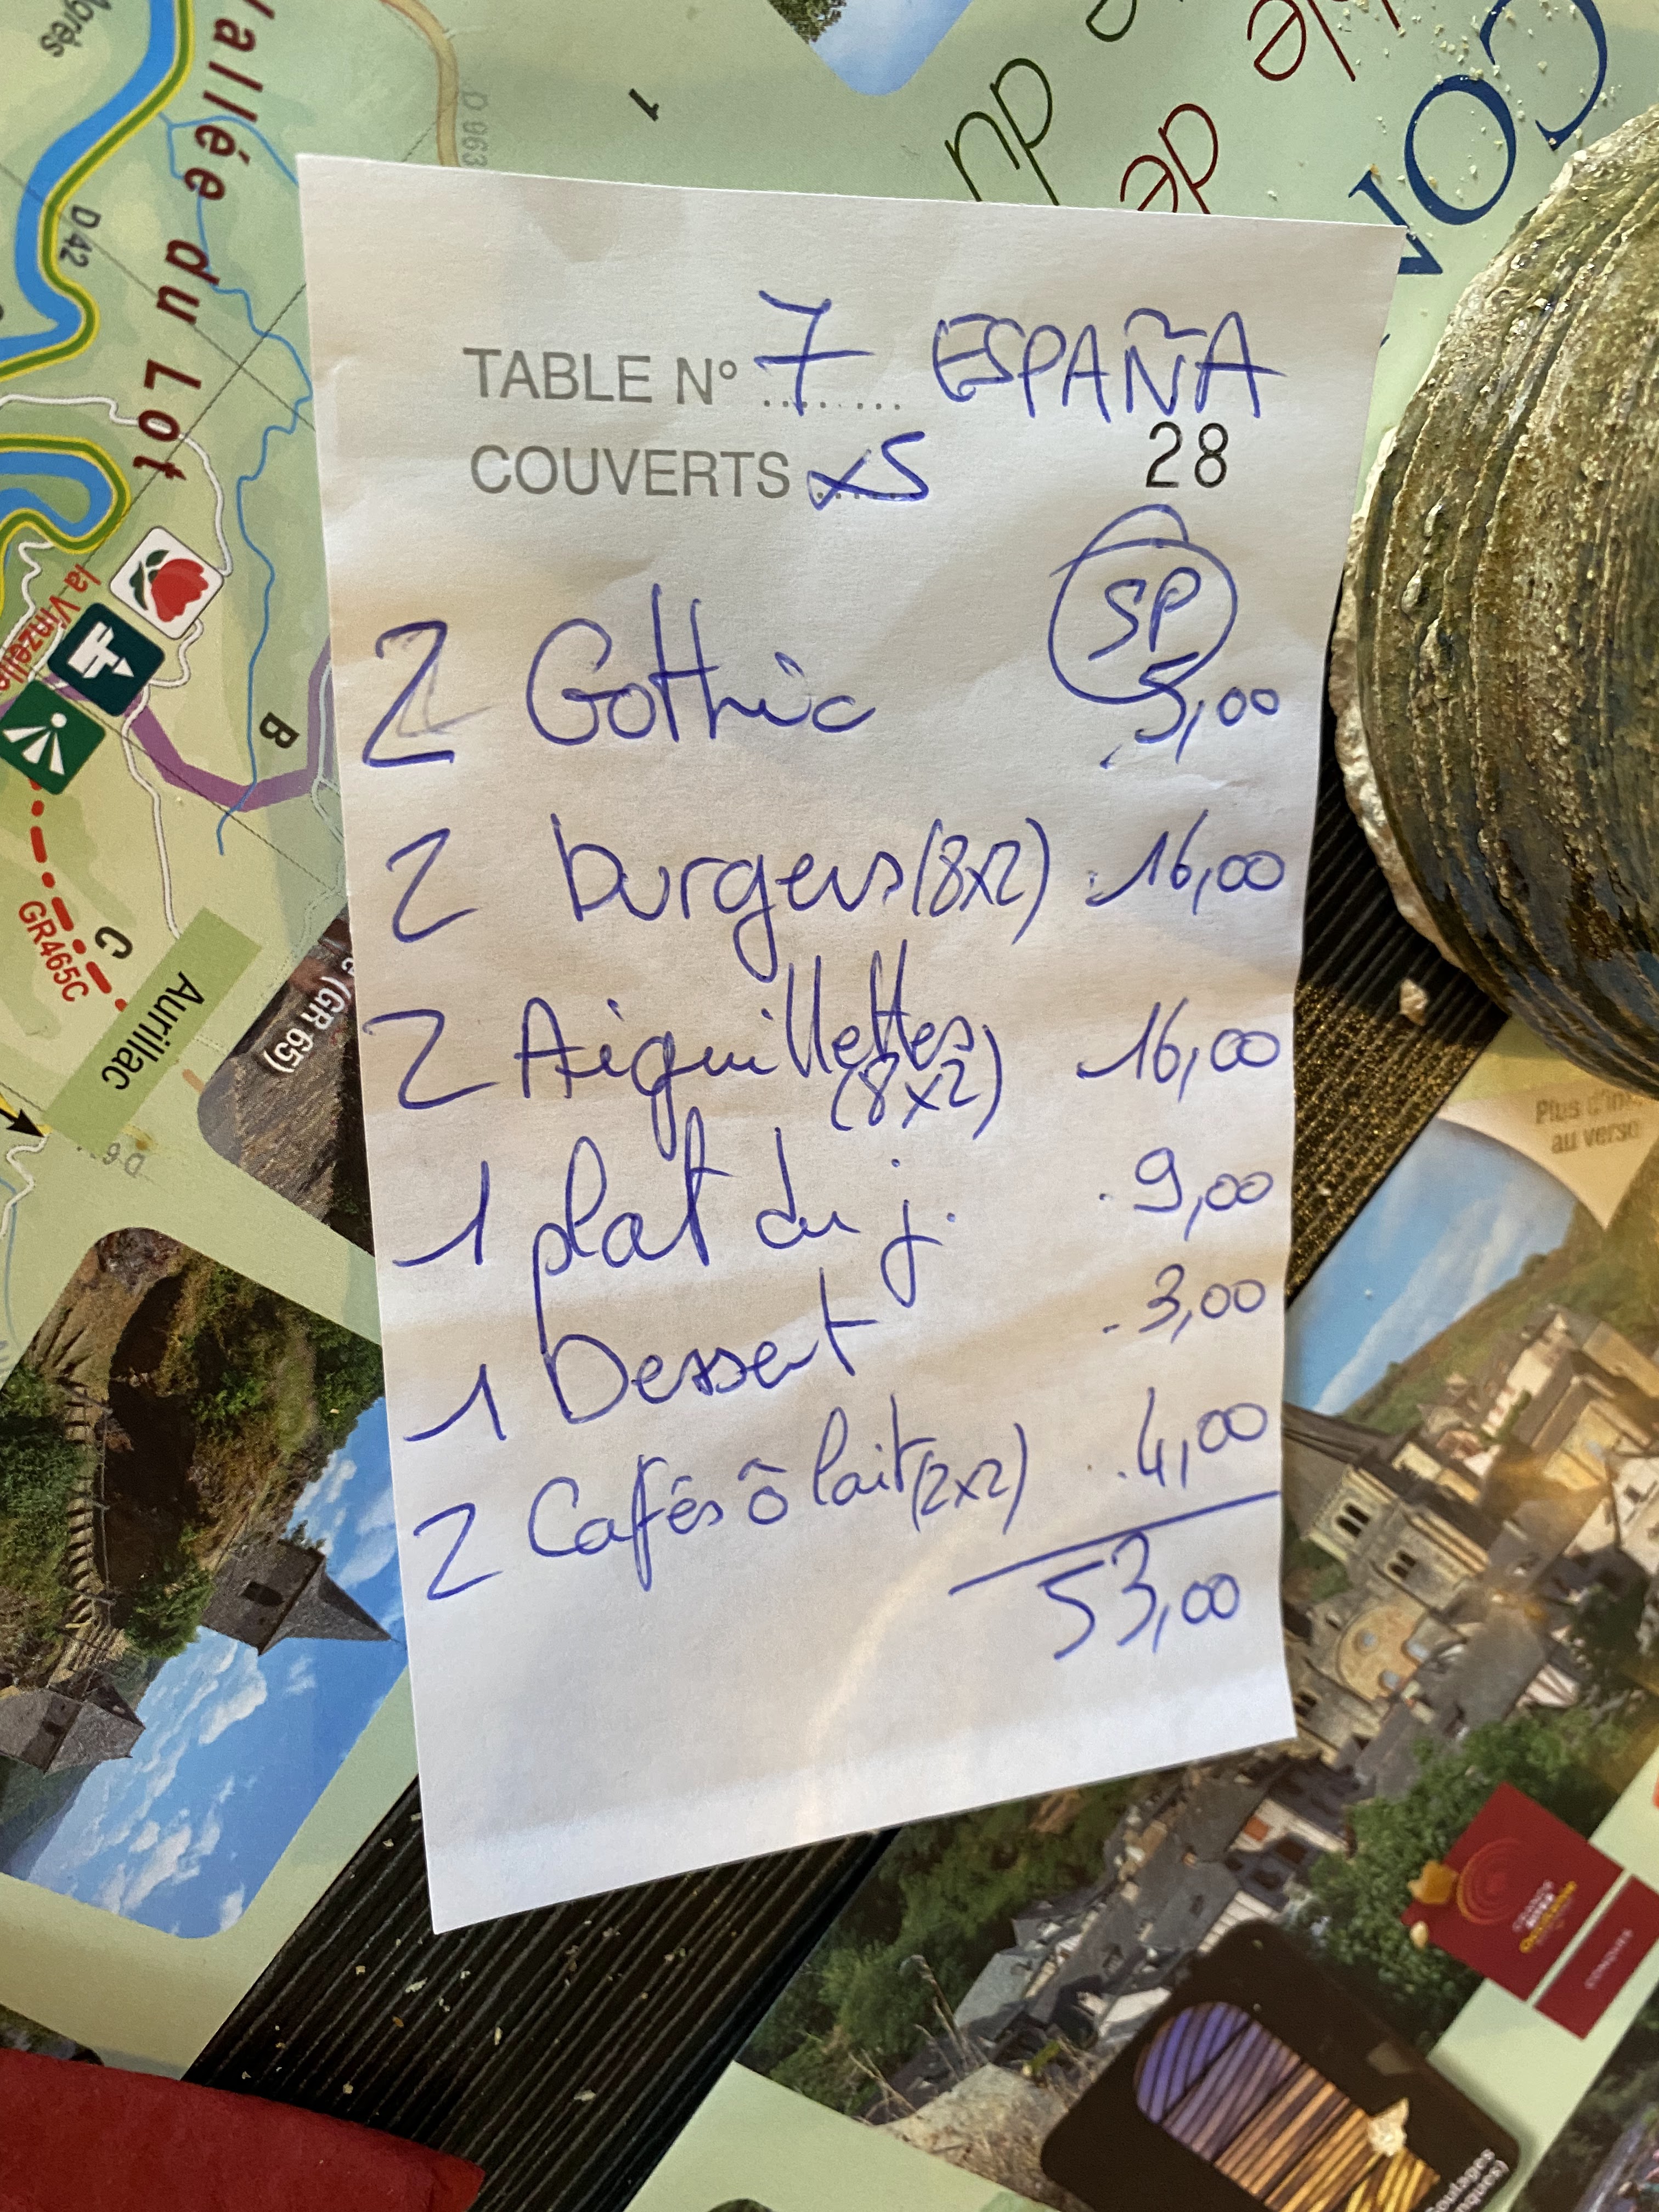 Vallée du Lot
D 42
D 963
1
du
de
CON
TABLE N° 7 ESPAÑA
COUVERTS x5 28
SP
2 Gothic 5,00
2 burgers (8x2) 16,00
2 Aiguillettes (8x2) 16,00
1 plat du j. 9,00
1 Dessert 3,00
2 Cafés ô lait (2x2) 4,00
53,00
la Vinzelle
B
C
GR465C
Aurillac
(GR 65)
Plus d'in
au verso
CONQUES